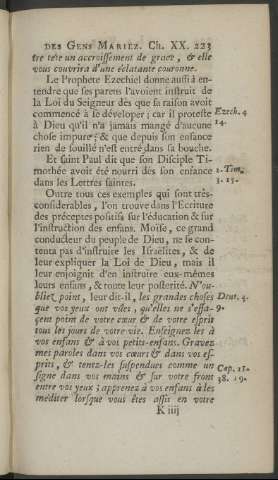 DES GENS MARIEZ. Ch. XX. 223
tre tête un accroissement de grace, & elle
vous couvrira d'une éclatante couronne.
Le Prophete Ezechiel donne aussi à en-
tendre que ses parens l'avoient instruit de
la Loi du Seigneur dès que sa raison avoit
commencé à se déveloper; car il proteste
à Dieu qu'il n'a jamais mangé d'aucune
chose impure; & que depuis son enfance
rien de souillé n'est entré dans sa bouche.
Ezech. 4
14.
Et saint Paul dit que son Disciple Ti-
mothée avoit été nourri dés son enfance
dans les Lettres saintes.
1. Tim.
3. 15.
Outre tous ces exemples qui sont très-
considerables, l'on trouve dans l'Ecriture
des préceptes positifs sur l'éducation & sur
l'instruction des enfans. Moïse, ce grand
conducteur du peuple de Dieu, ne se con-
tenta pas d'instruire les Israëlites, & de
leur expliquer la Loi de Dieu, mais il
leur enjoignit d'en instruire eux-mêmes
leurs enfans, & toute leur posterité. N'ou-
bliez point, leur dit-il, les grandes choses
que vos yeux ont vûës, qu'elles ne s'effa-
çent point de votre cœur & de votre esprit
tous les jours de votre vie. Enseignez les à
vos enfans & à vos petits-enfans. Gravez
mes paroles dans vos cœurs & dans vos es-
prits, & tenez-les suspendues comme un
signe dans vos mains & sur votre front
entre vos yeux; apprenez à vos enfans à les
méditer lorsque vous êtes assis en votre
Deut. 4.
9.
Cap. 11.
38. 19.
K iiij